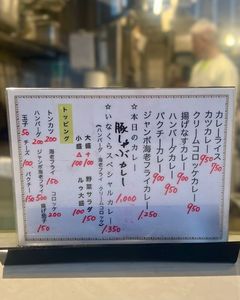 カレーライス 750
カツカレー 950
クリームコロッケカレー 950
揚げなすカレー 900
ハンバーグカレー 950
パクチーカレー 950
ジャンボ海老フライカレー 1,250
☆本日のカレー
豚しゃぶカレー 1,000
☆いなくらスペシャルカレー 1,350
(ハンバーグ・海老フライ・クリームコロッケ)
大盛 +100 野菜サラダ 100
小盛 △100 ルゥ大盛 150
トッピング
トンカツ 200 海老フライ 150 コロッケ 200
ハンバーグ 200 ジャンボ海老フライ 500 揚げ茄子 150
玉子 50 チーズ 100 パクチー 150